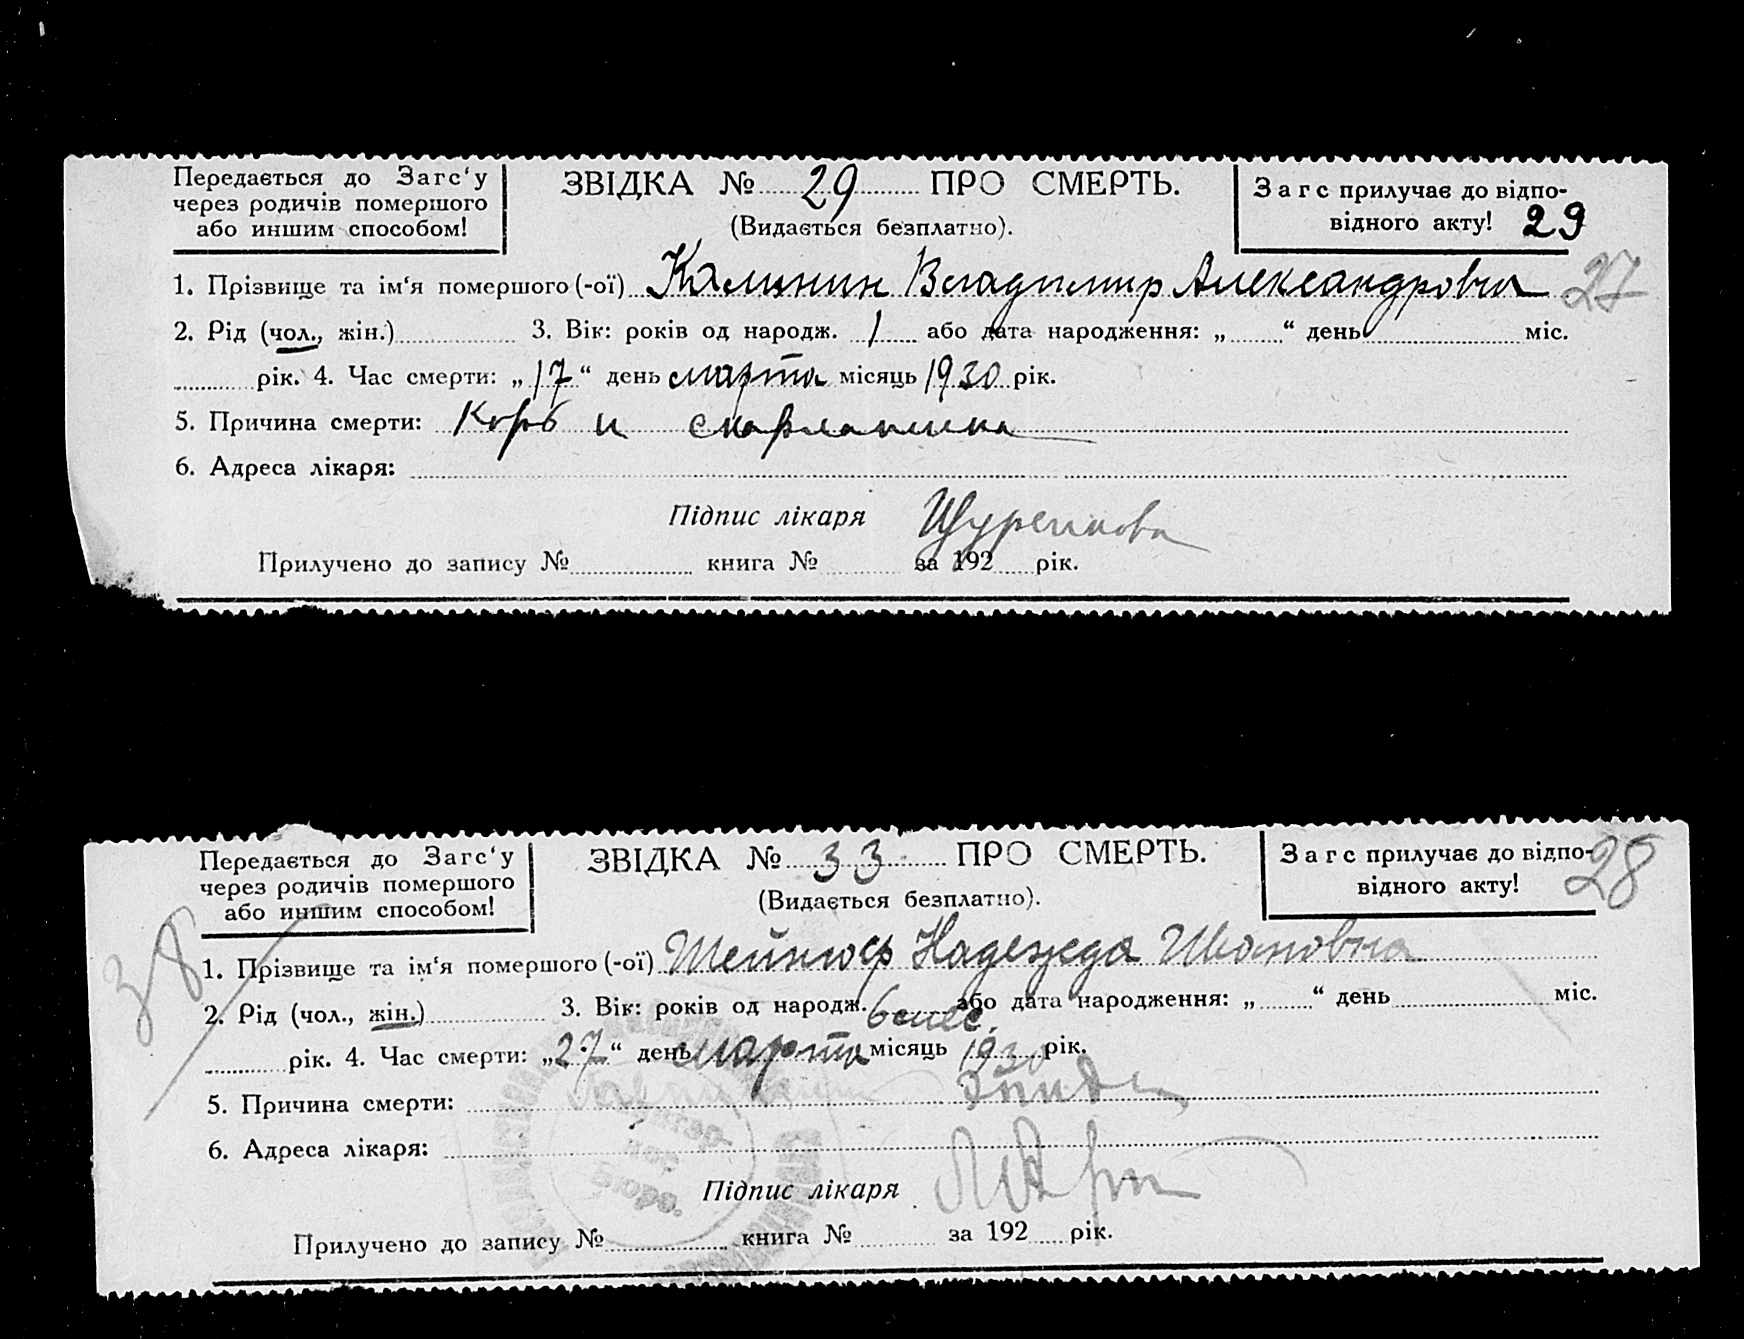 Передається до Загс‘у
через родичів помершого
або иншим способом!
ЗВІДКА № 29 ПРО СМЕРТЬ.
(Видається безплатно).
Загс прилучає до відпо-
відного акту! 29
1. Прізвище та ім‘я помершого (-ої) Калинин Владимир Александрович 27
2. Рід (чол., жін.) 3. Вік: років од народж. 1 або дата народження: „ “ день міс.
рік. 4. Час смерти: „17“ день марта місяць 1930 рік.
5. Причина смерти: Корь и скарлатина
6. Адреса лікаря:
Підпис лікаря
Прилучено до запису № книга № за 192 рік.
Передається до Загс‘у
через родичів помершого
або иншим способом!
ЗВІДКА № 33 ПРО СМЕРТЬ.
(Видається безплатно).
Загс прилучає до відпо-
відного акту! 28
38
1. Прізвище та ім‘я помершого (-ої) Надежда Ивановна
2. Рід (чол., жін.) 3. Вік: років од народж. 6 мес. або дата народження: „ “ день міс.
рік. 4. Час смерти: „27“ день марта місяць 1930 рік.
5. Причина смерти:
6. Адреса лікаря:
Підпис лікаря
Прилучено до запису № книга № за 192 рік.